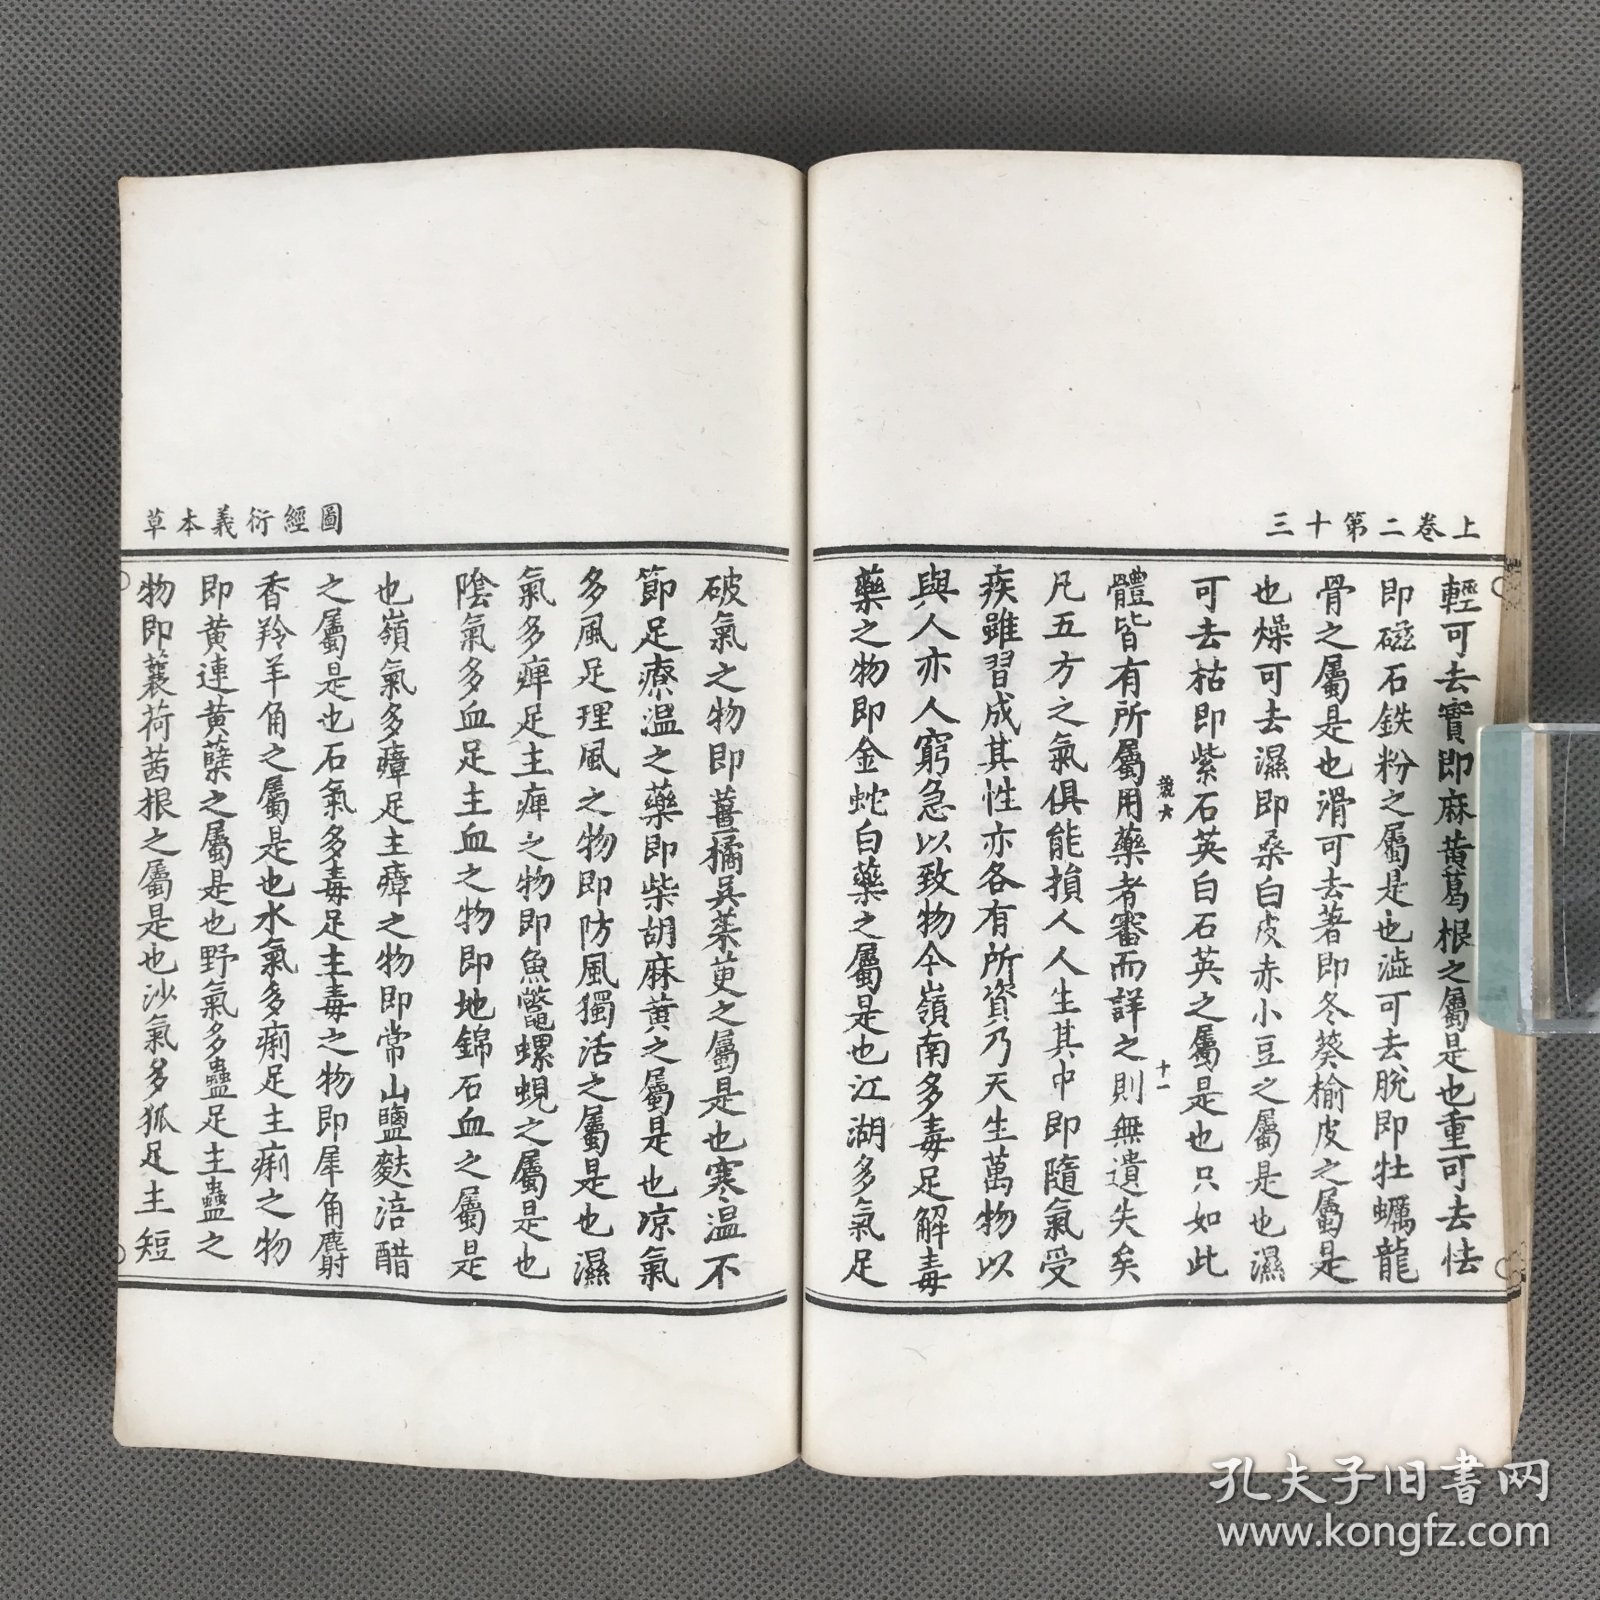 上卷二第十三
輕可去實即麻黄葛根之屬是也重可去怯
即磁石鉄粉之屬是也澁可去脫即牡蠣龍
骨之屬是也滑可去著即冬葵榆皮之屬是
也燥可去濕即桑白皮赤小豆之屬是也濕
可去枯即紫石英白石英之屬是也只如此
體皆有所屬用藥者審而詳之則無遺失矣
十一
凡五方之氣俱能損人人生其中即隨氣受
疾雖習成其性亦各有所資乃天生萬物以
與人亦人窮急以致物今嶺南多毒足解毒
藥之物即金蛇白藥之屬是也江湖多氣足
圖經衍義本草
破氣之物即薑橘吳茱萸之屬是也寒溫不
節足療溫之藥即柴胡麻黄之屬是也凉氣
多風足理風之物即防風獨活之屬是也濕
氣多痺足主痺之物即魚鼈螺蜆之屬是也
陰氣多血足主血之物即地錦石血之屬是
也嶺氣多瘴足主瘴之物即常山鹽麩涪醋
之屬是也石氣多毒足主毒之物即犀角麝
香羚羊角之屬是也水氣多痢足主痢之物
即黄連黄蘗之屬是也野氣多蠱足主蠱之
物即蘘荷茜根之屬是也沙氣多狐足主短
孔夫子旧书网
www.kongfz.com